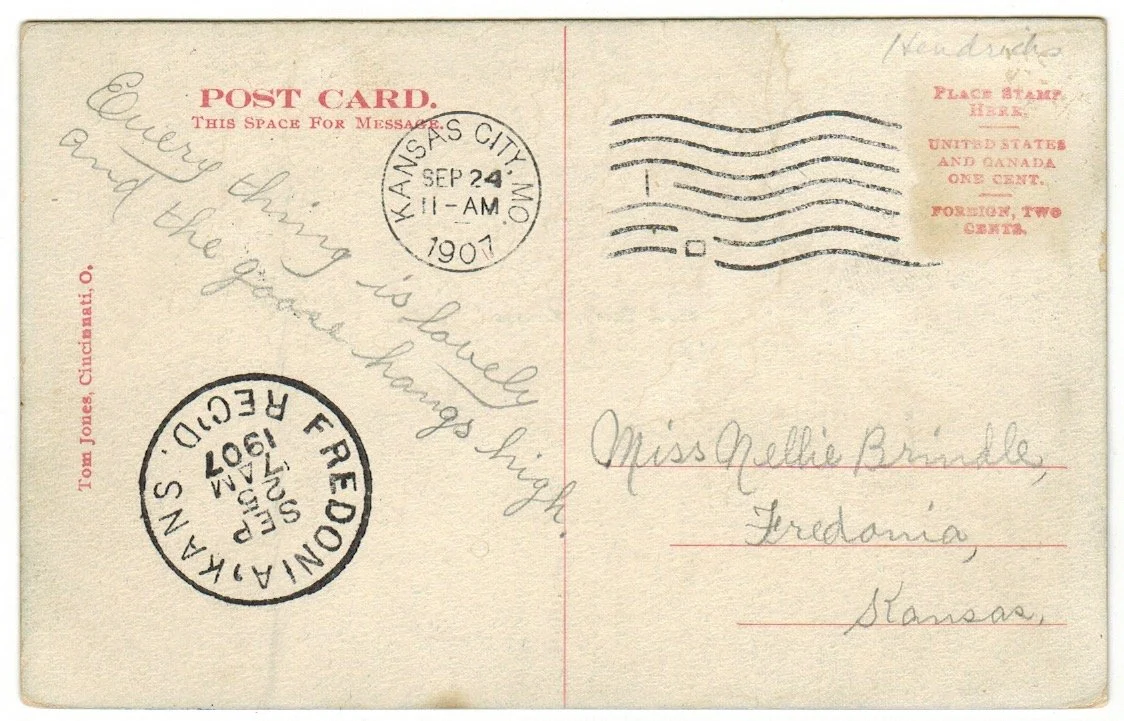 Hendricks
POST CARD.
THIS SPACE FOR MESSAGE.
PLACE STAMP
HERE.
UNITED STATES
AND CANADA
ONE CENT.
FOREIGN, TWO
CENTS.
KANSAS CITY, MO.
SEP 24
11-AM
1907
Every thing is lovely
and the goose hangs high.
Tom Jones, Cincinnati, O.
FREDONIA, KANS.
REC'D.
SEP
7AM
1907
Miss Nellie Brindle,
Fredonia,
Kansas,